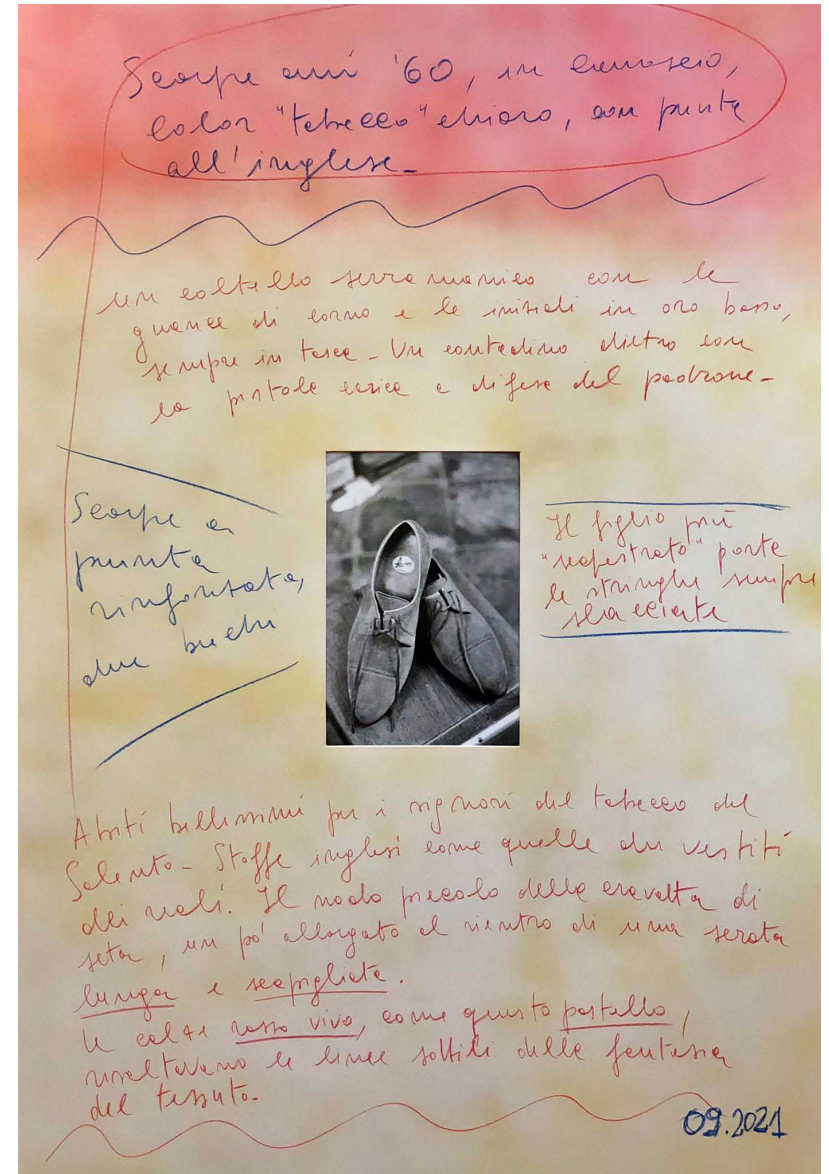 Scarpe anni '60, in camoscio,
color "tabacco" chiaro, con punta
all'inglese_
un coltello serramanico con le
guance di corno e le iniziali in oro basso,
sempre in tasca_ Un contadino dietro con
la pistola carica a difesa del padrone_
Scarpe a
punta
rinforzata,
due buchi
Il figlio più
"scapestrato" porta
le stringhe sempre
slacciate
Abiti bellissimi per i signori del tabacco del
Salento_ Stoffe inglesi come quelle dei vestiti
dei reali. Il nodo piccolo della cravatta di
seta, un po' allargato al rientro di una serata
lunga e scapigliata.
Le calze rosso vivo, come questo pastello,
risaltavano le linee sottili della fantasia
del tessuto_
09.2021